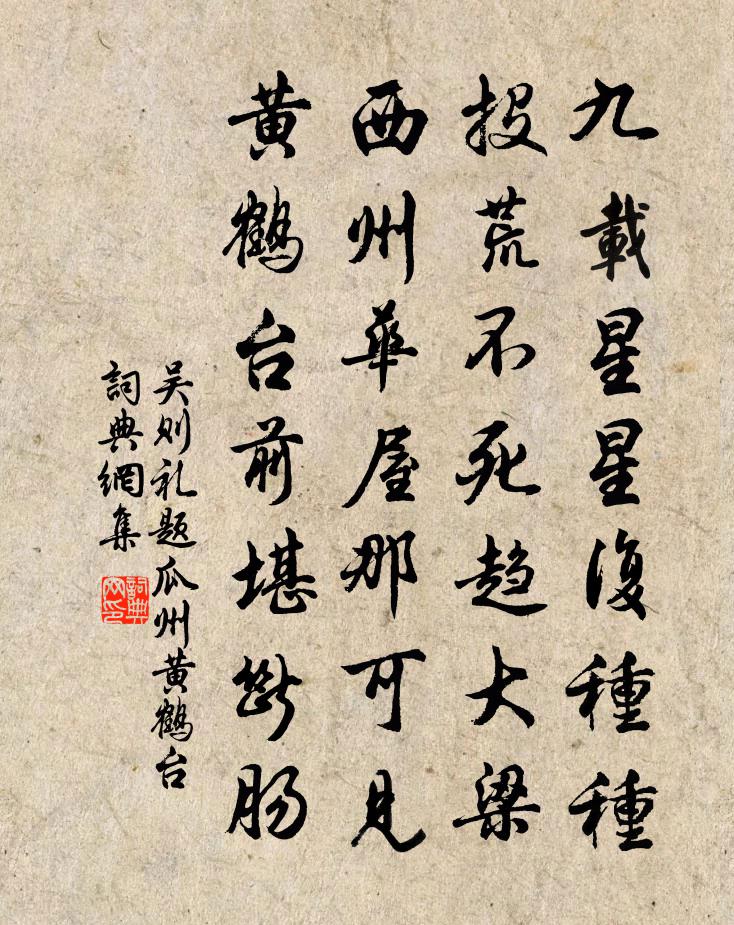 九載星星復種種
投荒不死趋大梁
西州華屋那可見
黄鶴台前堪斷肠
吴则礼题瓜州黄鶴台
詞典網集
詞典網印